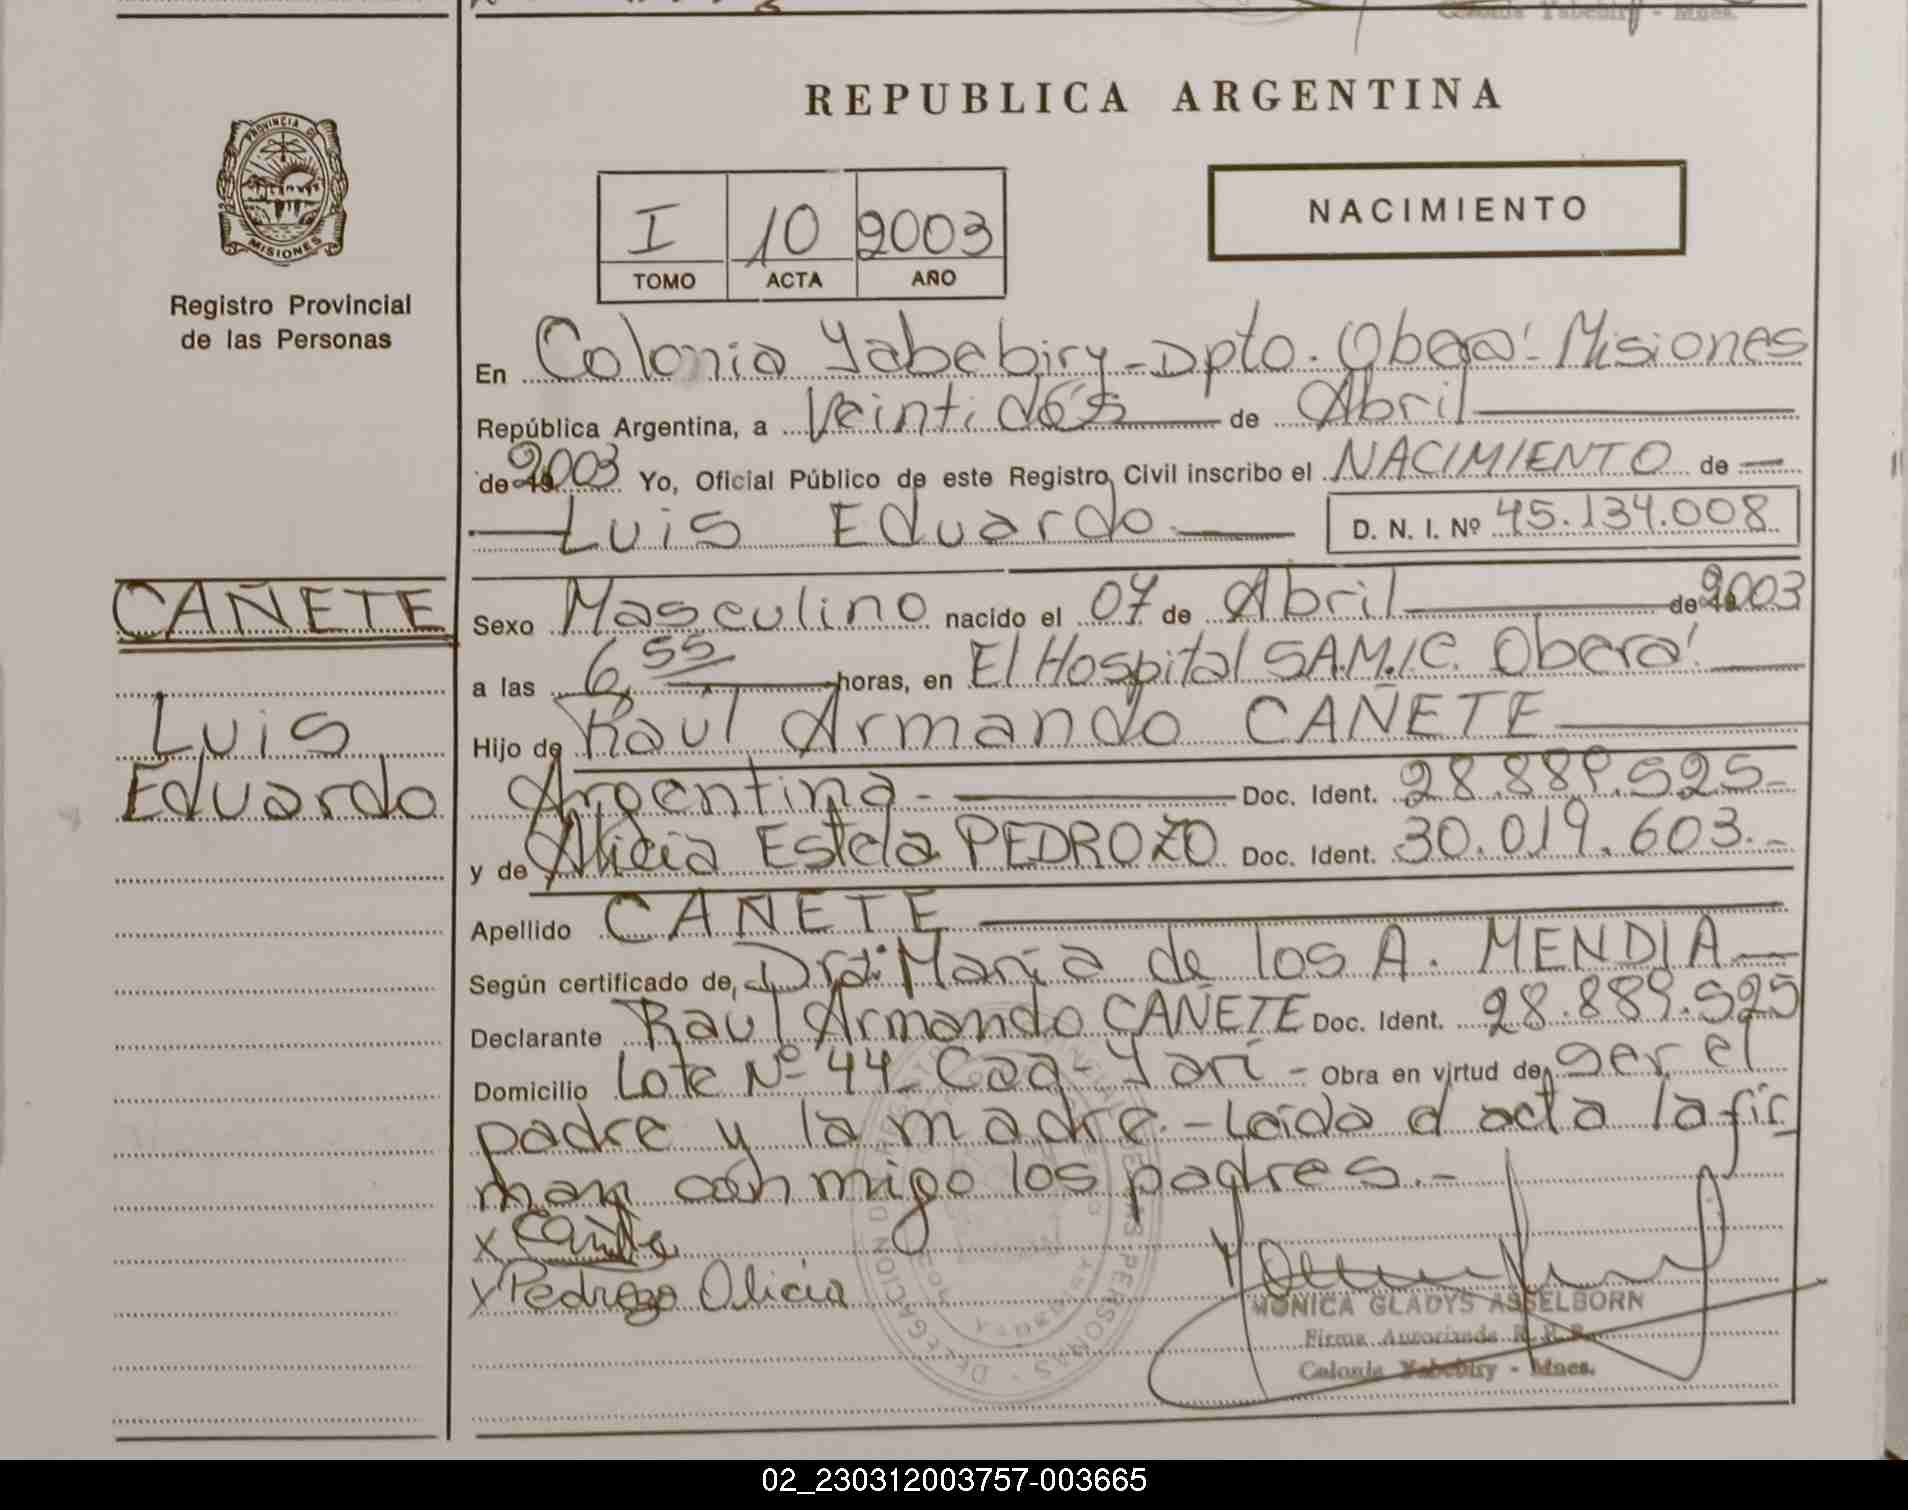 REPUBLICA ARGENTINA
PROVINCIA DE MISIONES
Registro Provincial
de las Personas
I 10 2003
TOMO ACTA AÑO
NACIMIENTO
En Colonia Yabebiry - Dpto. Oberá - Misiones
República Argentina, a Veintidós de Abril
de 2003 Yo, Oficial Público de este Registro Civil inscribo el NACIMIENTO de
Luis Eduardo D. N. I. Nº 45.134.008
CAÑETE
Luis
Eduardo
Sexo Masculino nacido el 07 de Abril de 2003
a las 6,55 horas, en El Hospital S.A.M.I.C. Oberá
Hijo de Raul Armando CAÑETE
Argentina - Doc. Ident. 28.889.525-
y de Alicia Estela PEDROZO Doc. Ident. 30.019.603.-
Apellido CAÑETE
Según certificado de, Dra: María de los A. MENDIA
Declarante Raul Armando CAÑETE Doc. Ident. 28.889.525
Domicilio Lote Nº 44 - Caa-Yarí - Obra en virtud de ser el
padre y la madre.- Leída el acta la fir
man conmigo los padres.-
x Cañete
x Pedrozo Alicia
MONICA GLADYS ASSELBORN
Firma Autorizada R. P. P.
Colonia Yabebiry - Mnes.
02_230312003757-003665